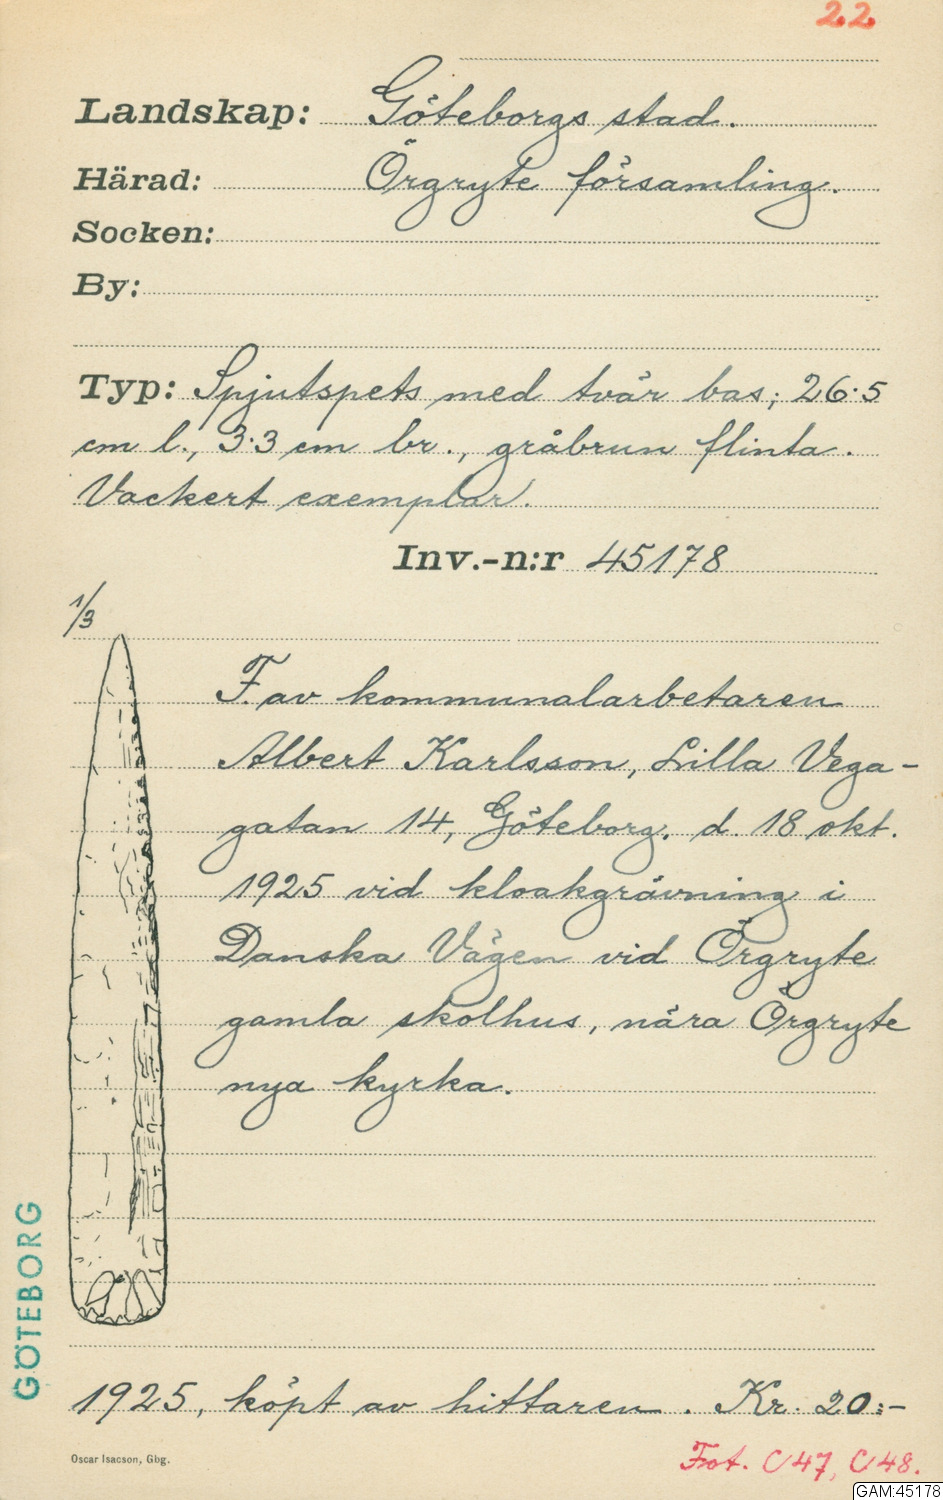 22
Landskap: Göteborgs stad.
Härad: Örgryte församling.
Socken:
By:
Typ: Spjutspets med tvär bas; 26·5
cm l., 3·3 cm br., gråbrun flinta.
Vackert exemplar.
Inv.-n:r 45178
1/3
F. av kommunalarbetaren
Albert Karlsson, Lilla Vega-
gatan 14, Göteborg, d. 18 okt.
1925 vid kloakgrävning i
Danska Vägen vid Örgryte
gamla skolhus, nära Örgryte
nya kyrka.
GÖTEBORG
1925, köpt av hittaren. Kr. 20:-
Oscar Isacson, Gbg.
Fot. C 47, C 48.
GAM:45178